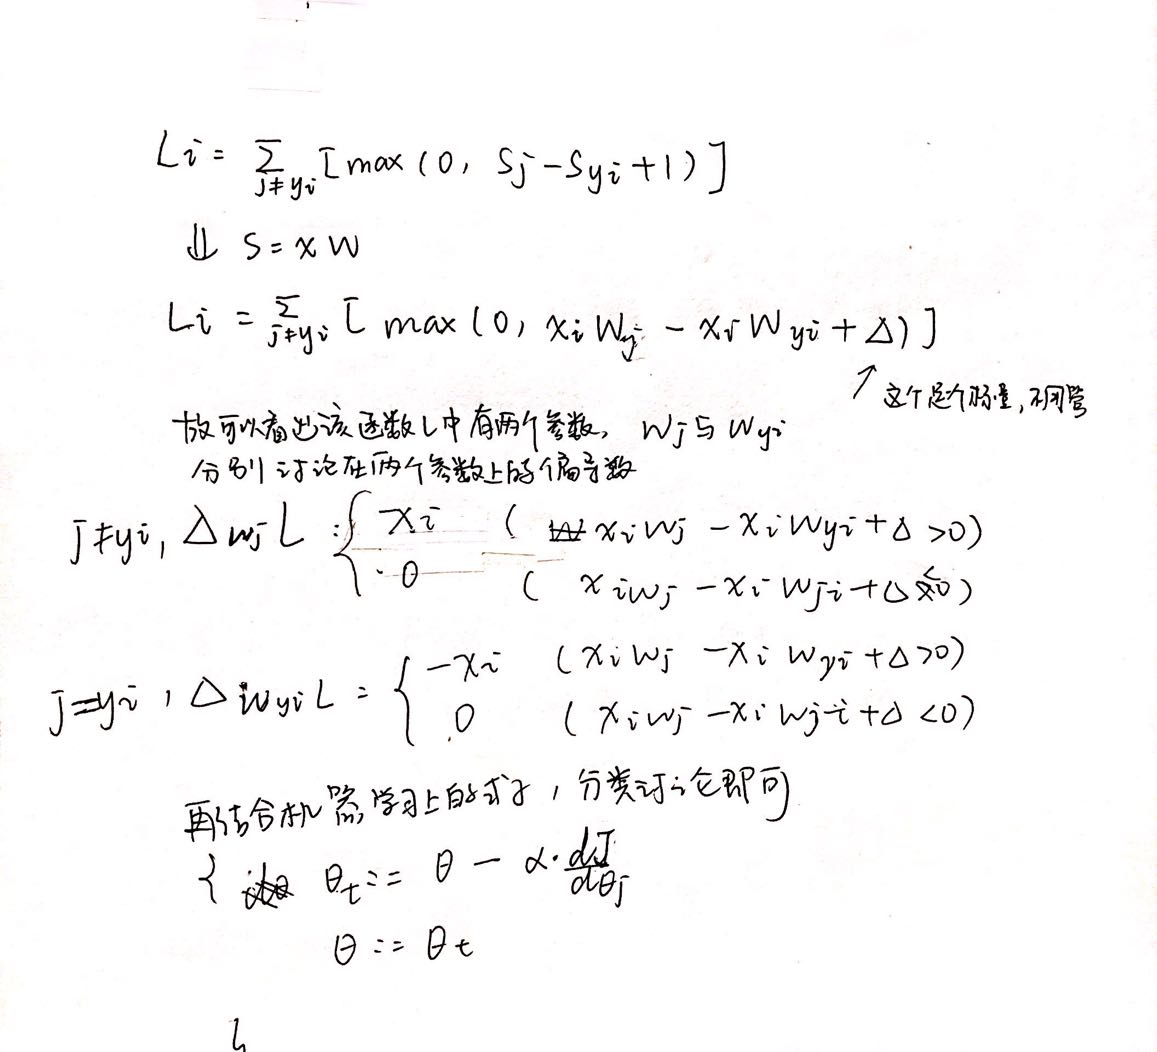 Li = Σ j≠yi [max(0, Sj-Syi+1)]
⇓ S=xW
Li = Σ j≠yi [max(0, xiWj - xiWyi+Δ)]
↗ 这个是个标量,不用管
故可以看出该函数L中有两个参数, Wj与Wyi
分别讨论在两个参数上的偏导数
j≠yi, ΔwjL : { xi ( xiwj - xiWyi+Δ >0)
0 ( xiwj - xi Wji+Δ <0)
j=yi, ΔwyiL = { -xi (xiWj -xi wyi+Δ>0)
0 ( xiwj -xi Wji+Δ <0)
再结合机器学习上的式子,分类讨论即可
{ θt := θ - α·dJ/dθj
θ := θt